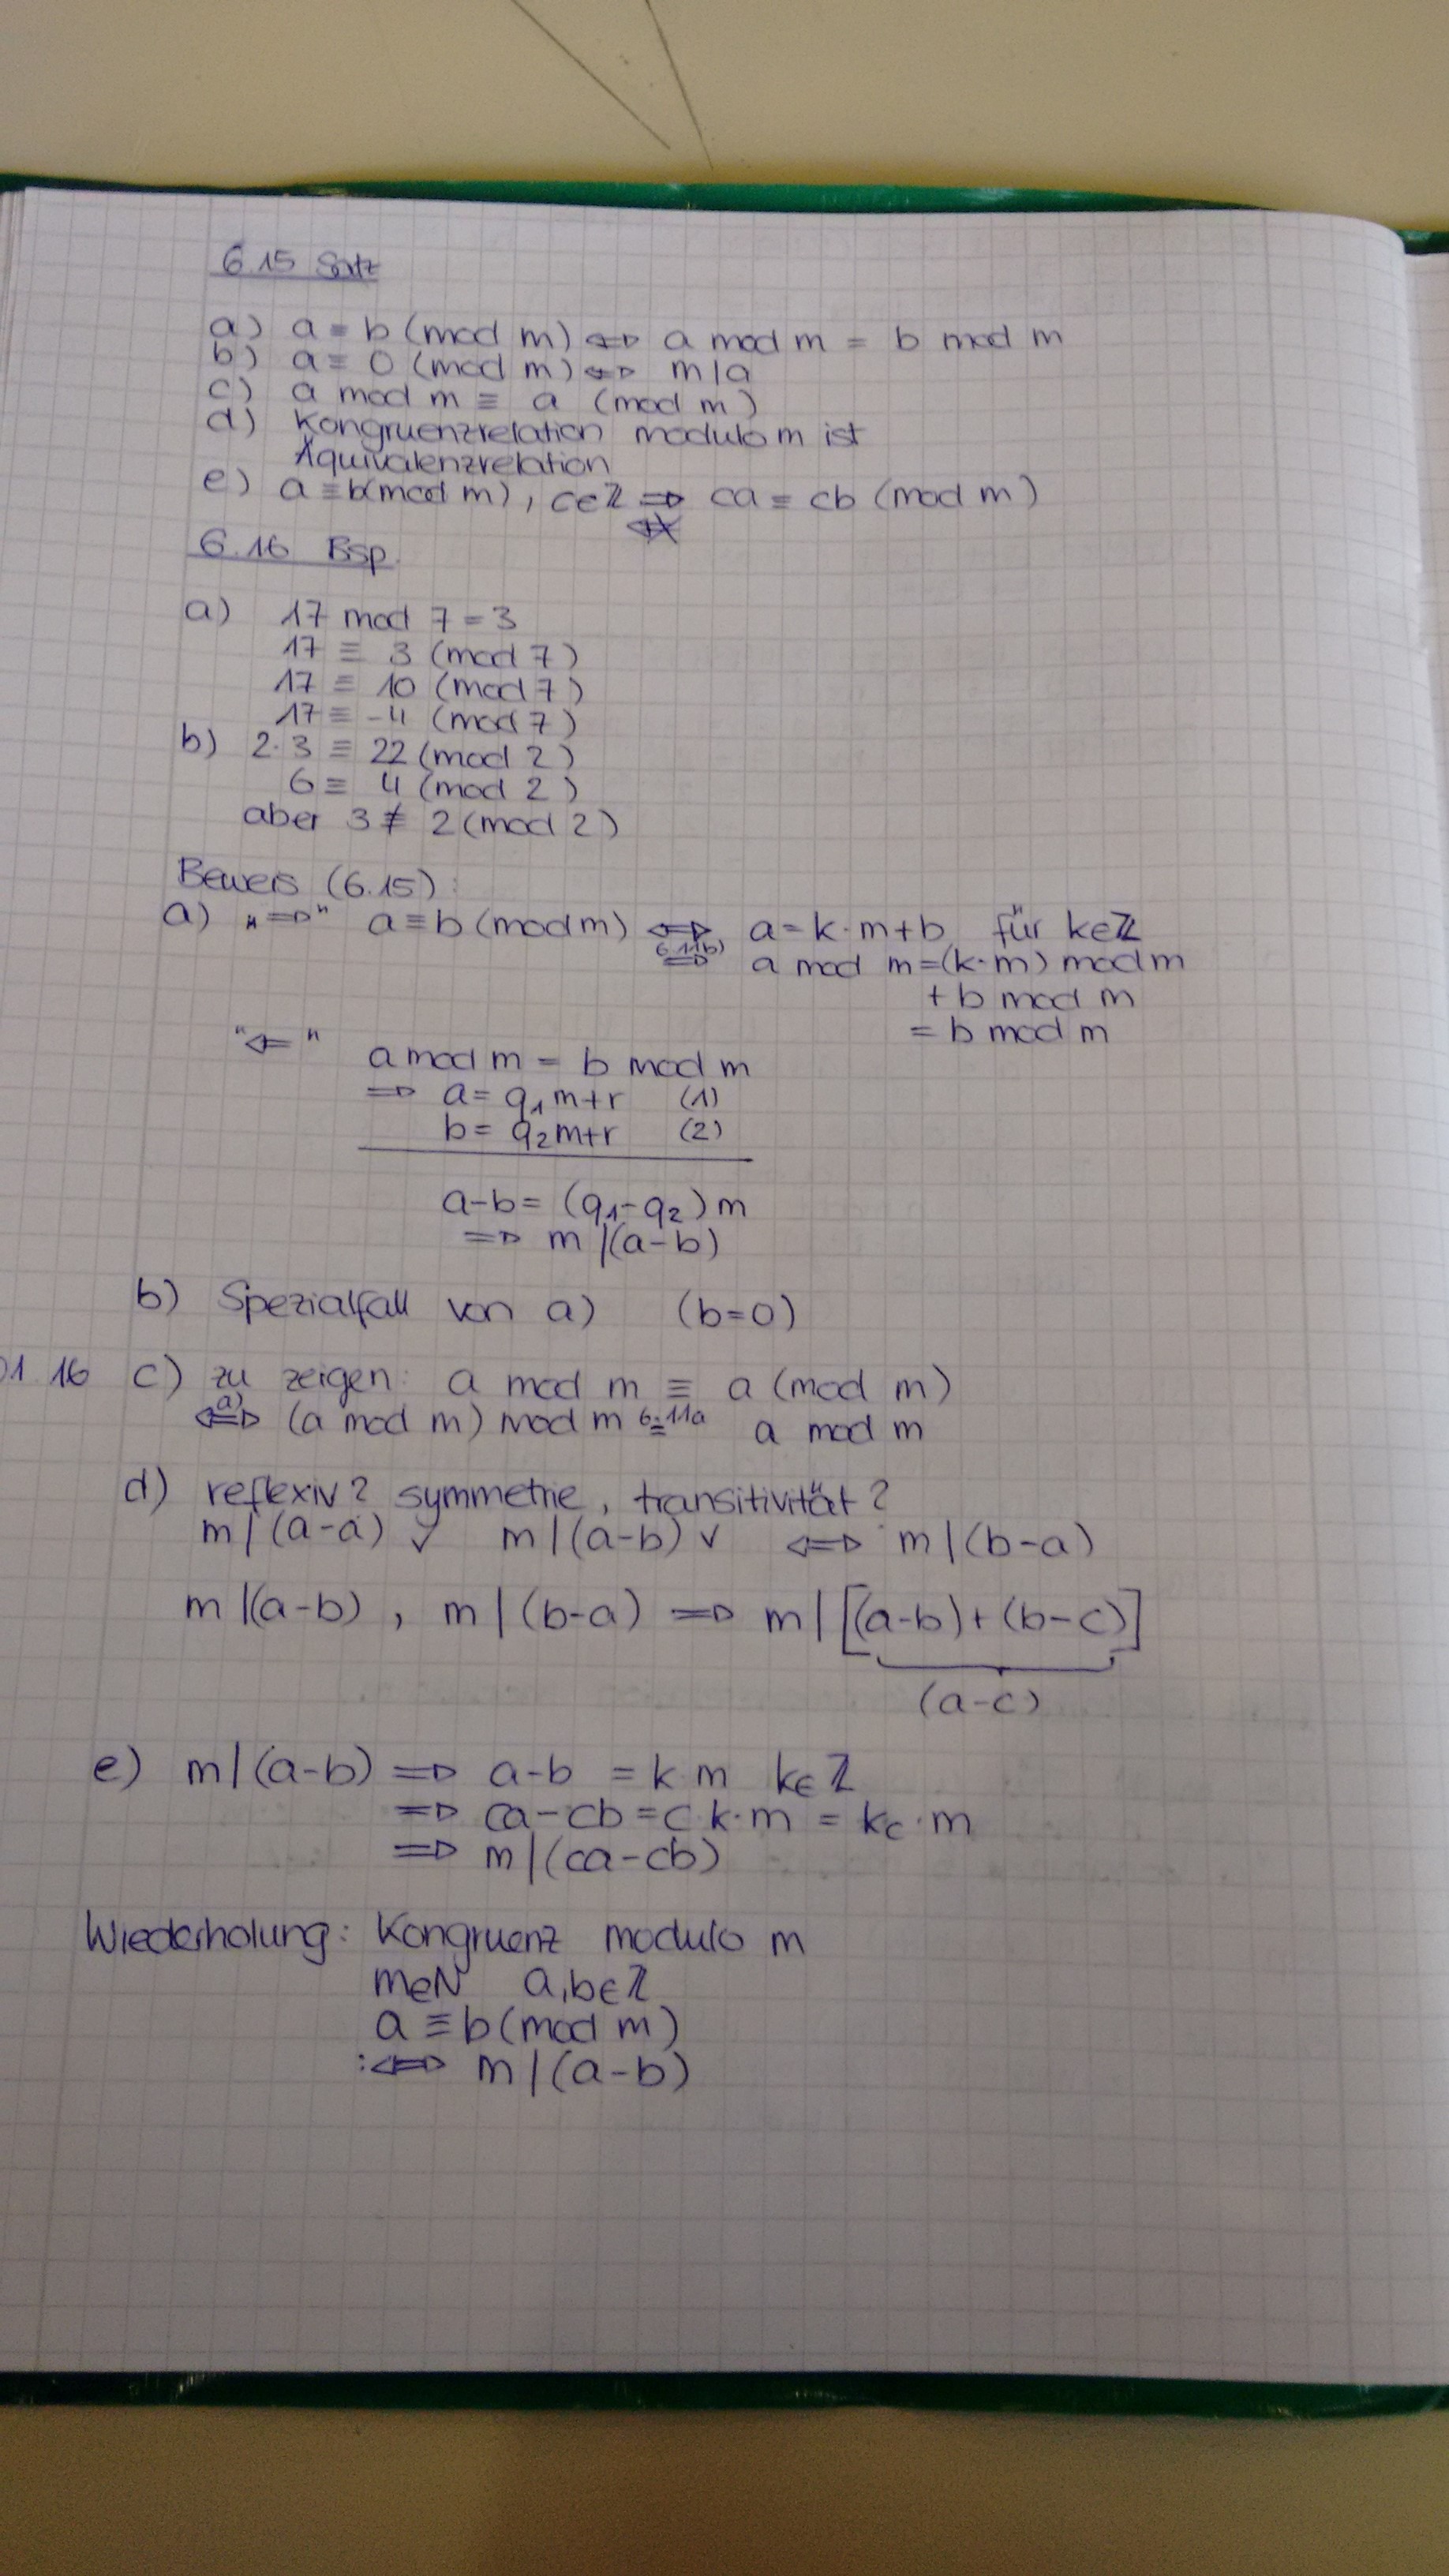 6.15 Satz
a) a ≡ b (mod m) ⇔ a mod m = b mod m
b) a ≡ 0 (mod m) ⇔ m|a
c) a mod m ≡ a (mod m)
d) Kongruenzrelation modulo m ist
Äquivalenzrelation
e) a ≡ b(mod m), c∈ℤ ⇒ ca ≡ cb (mod m)
⇍
6.16 Bsp.
a) 17 mod 7 = 3
17 ≡ 3 (mod 7)
17 ≡ 10 (mod 7)
17 ≡ -4 (mod 7)
b) 2·3 ≡ 22 (mod 2)
6 ≡ 4 (mod 2)
aber 3 ≢ 2 (mod 2)
Beweis (6.15):
a) "⇒" a ≡ b (mod m) ⇔ a = k·m+b für k∈ℤ
6.11b) ⇒ a mod m = (k·m) mod m
+ b mod m
= b mod m
"⇐"
a mod m = b mod m
⇒ a = q₁m+r (1)
b = q₂m+r (2)
a-b = (q₁-q₂)m
⇒ m|(a-b)
b) Spezialfall von a) (b=0)
01.16 c) zu zeigen: a mod m ≡ a (mod m)
a) ⇔ (a mod m) mod m 6.11a = a mod m
d) reflexiv? symmetrie, transitivität?
m|(a-a) ✓ m|(a-b) ✓ ⇔ m|(b-a)
m|(a-b), m|(b-a) ⇒ m|[(a-b)+(b-c)]
(a-c)
e) m|(a-b) ⇒ a-b = k·m k∈ℤ
⇒ ca-cb = c·k·m = kc·m
⇒ m|(ca-cb)
Wiederholung: Kongruenz modulo m
m∈N a,b∈ℤ
a ≡ b (mod m)
:⇔ m|(a-b)